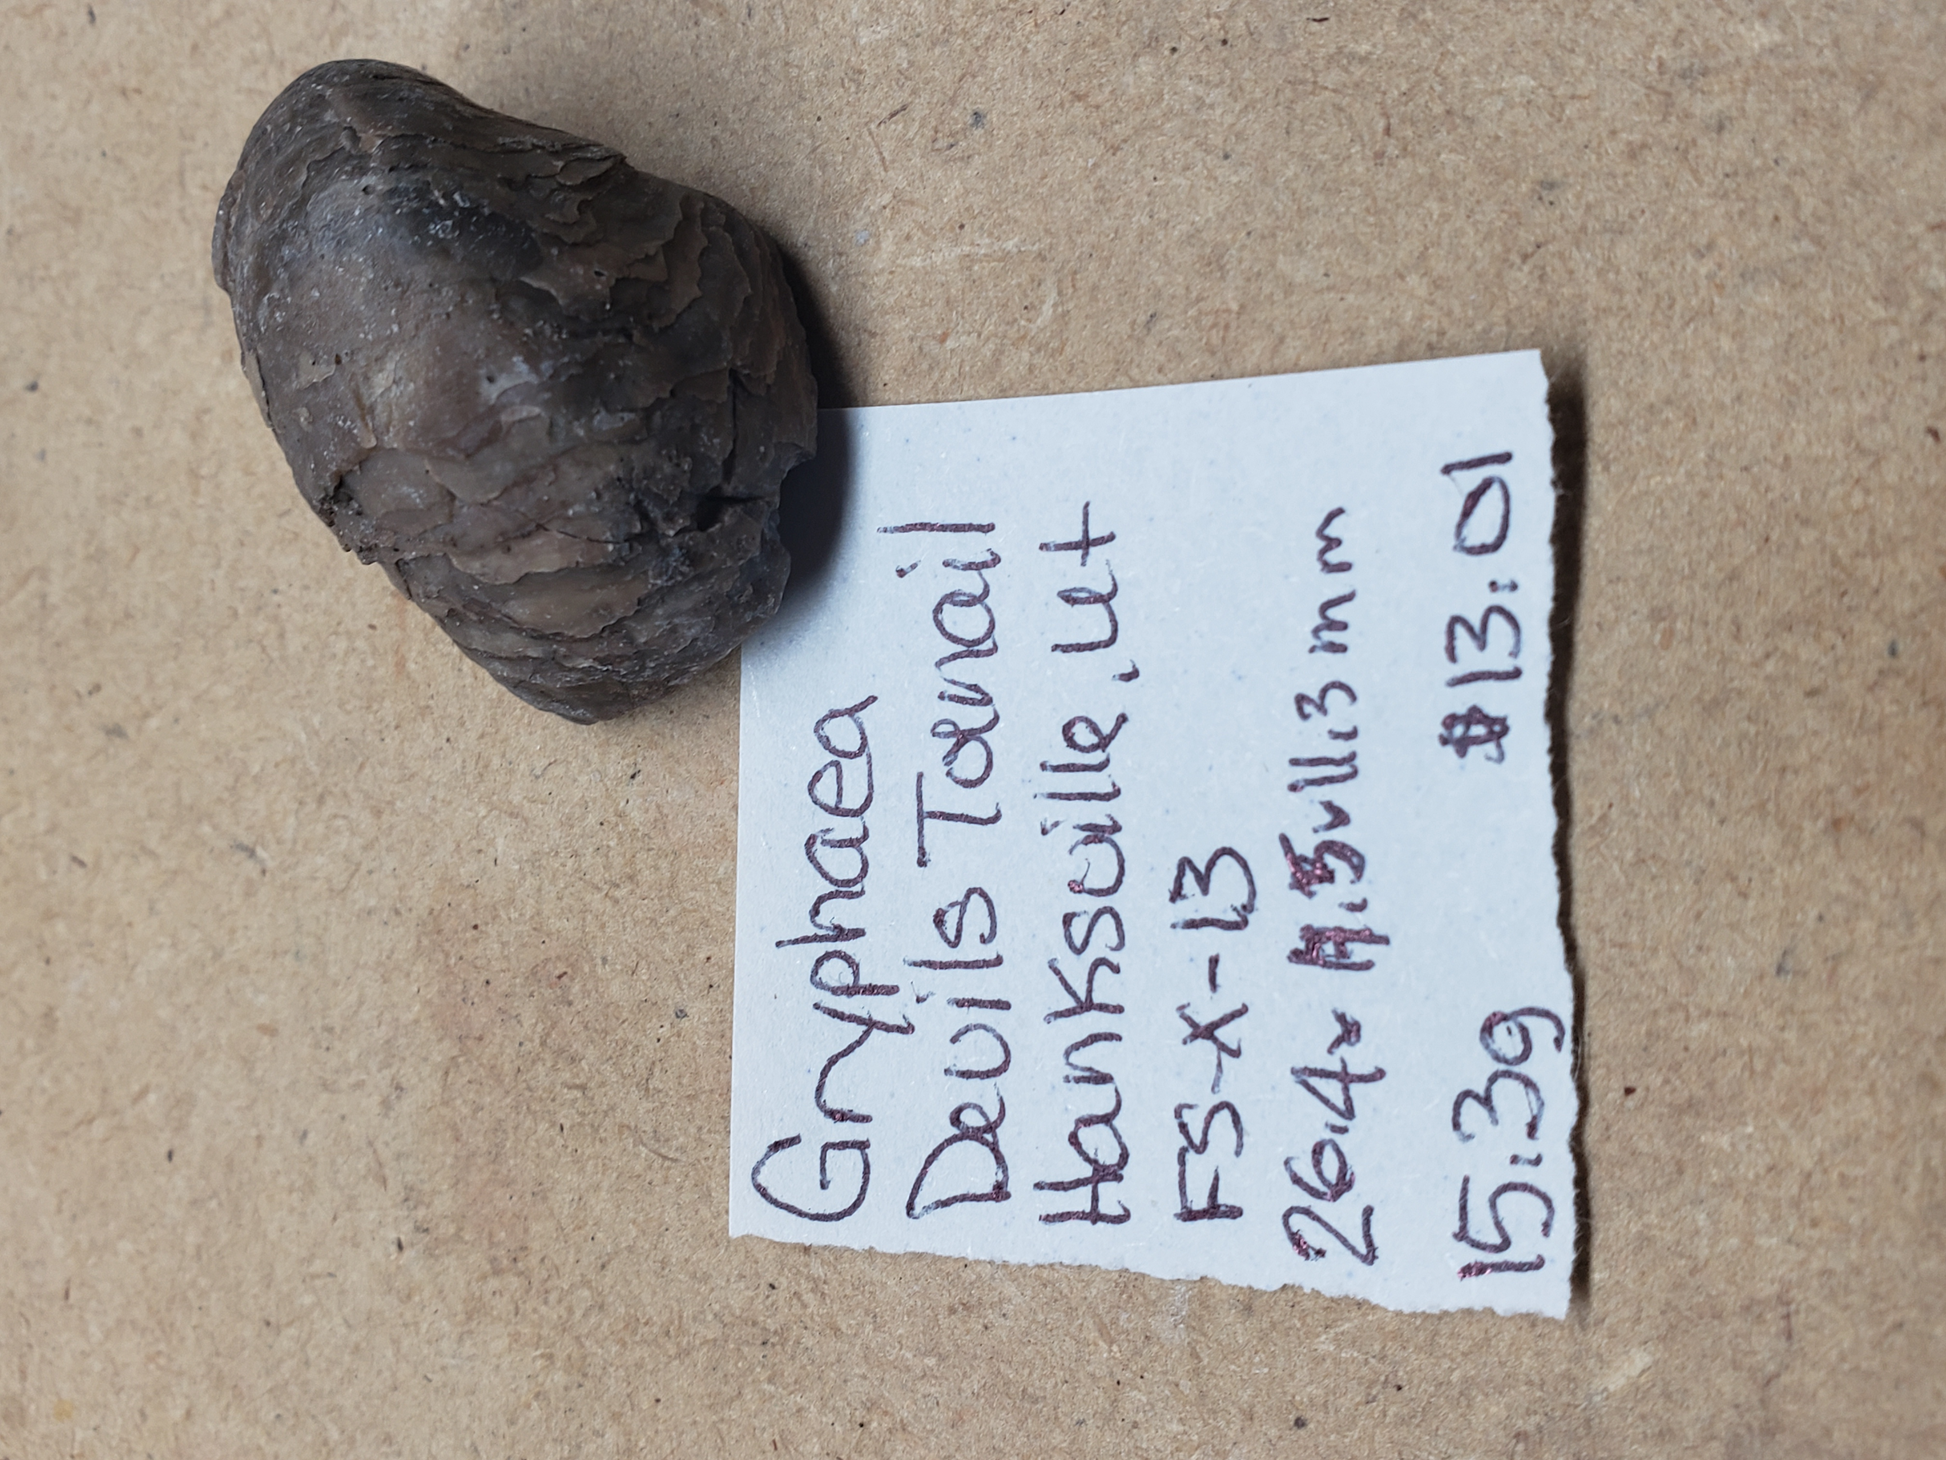 Gryphaea
Devils Toenail
Hanksville, Ut
FS-X-13
26.4x 11.3mm
15.3g #13.01